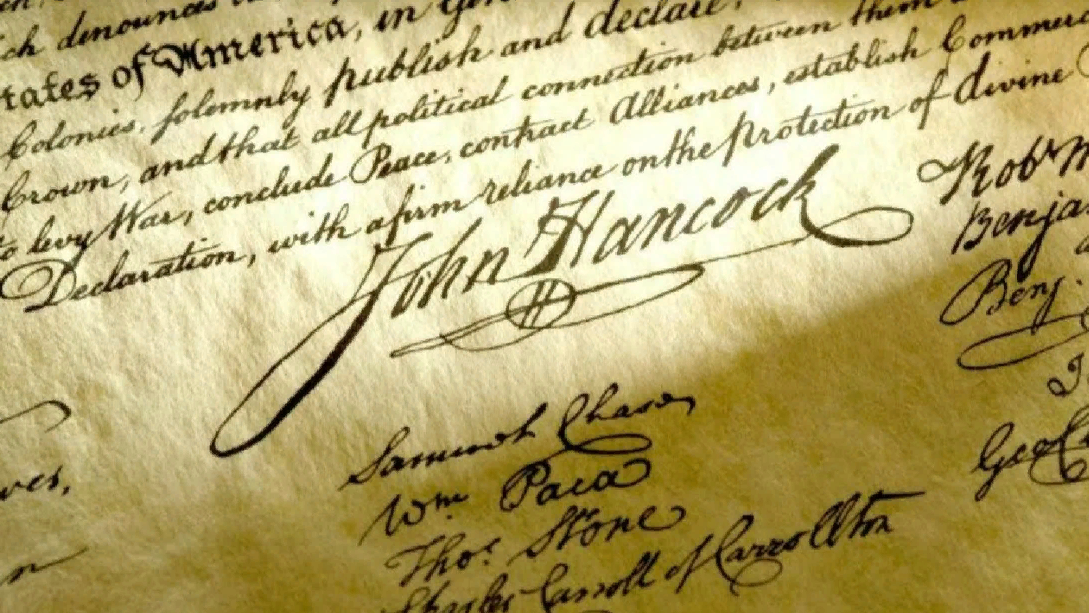 ch denounces
tates of America, in Gen
Colonies, solemnly publish and declare,
Crown, and that all political connection between them
to levy War, conclude Peace, contract Alliances, establish Commer
Declaration, with a firm reliance on the protection of divine
John Hancock
Rob^t M
Benja
Benj.
Samuel Chase
W^m Paca
Tho^s Stone
Charles Carroll of Carrollton
Geo C
ves,